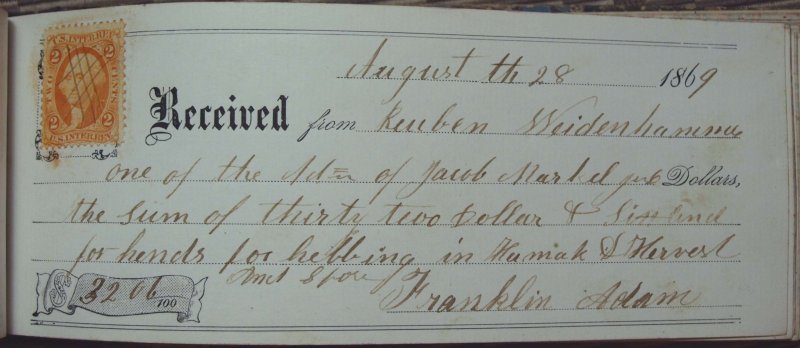 U.S. INTER. REV.
2 2
TWO CENTS
2 2
U.S. INTER. REV.
August th 28 1869
Received from Reuben Weidenhammer
one of the Adm of Jacob Markel Dollars,
the sum of thirty two Dollar &
for hends for helbing in Hamak & Hervest
And
$ 32 66/100 Franklin Adam